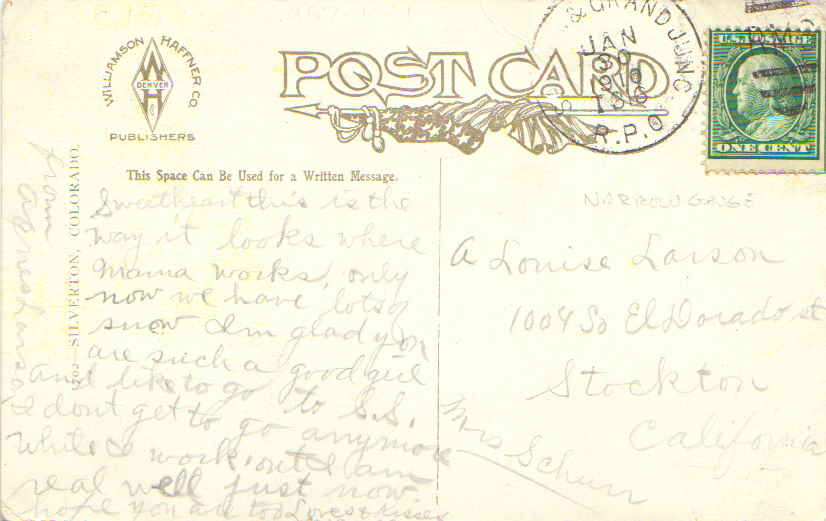 WILLIAMSON HAFFNER CO.
DENVER
PUBLISHERS
POST CARD
& GRAND JUNC
JAN
30
1910
R.P.O.
U.S. POSTAGE
ONE CENT
This Space Can Be Used for a Written Message.
SILVERTON, COLORADO.
NARROW GAUGE
Sweetheart this is the
way it looks where
mama works, only
now we have lots of
snow I'm glad you
are such a good girl
and like to go to S.S.
I dont get to go anymore
while I work out I am
real well just now
hope you are too Loves & kisses
from
Agnes Larson
A Louise Larson
1004 So El Dorado st
Stockton
California
Mrs Schurr